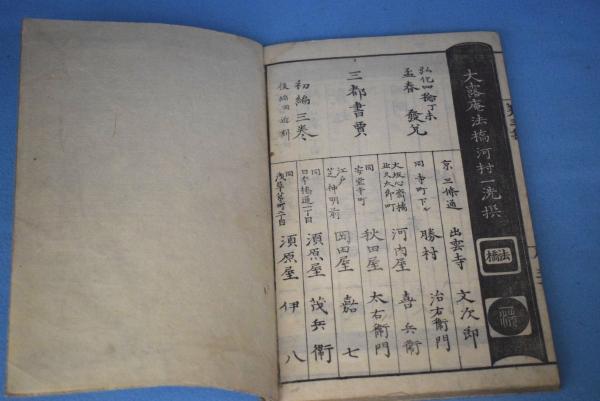 大露庵法橋河村一洗撰
法橋
弘化四稔丁未
孟春 發兌
三都書賈
初編三巻
後編四近刻
京三條通 出雲寺 文次郎
同寺町下ル 勝村 治右衛門
大坂心斎橋北久太郎町 河内屋 喜兵衛
同安堂寺町 秋田屋 太右衛門
江戸芝神明前 岡田屋 嘉七
同日本橋通一丁目 須原屋 茂兵衛
同浅草茅町二丁目 須原屋 伊八